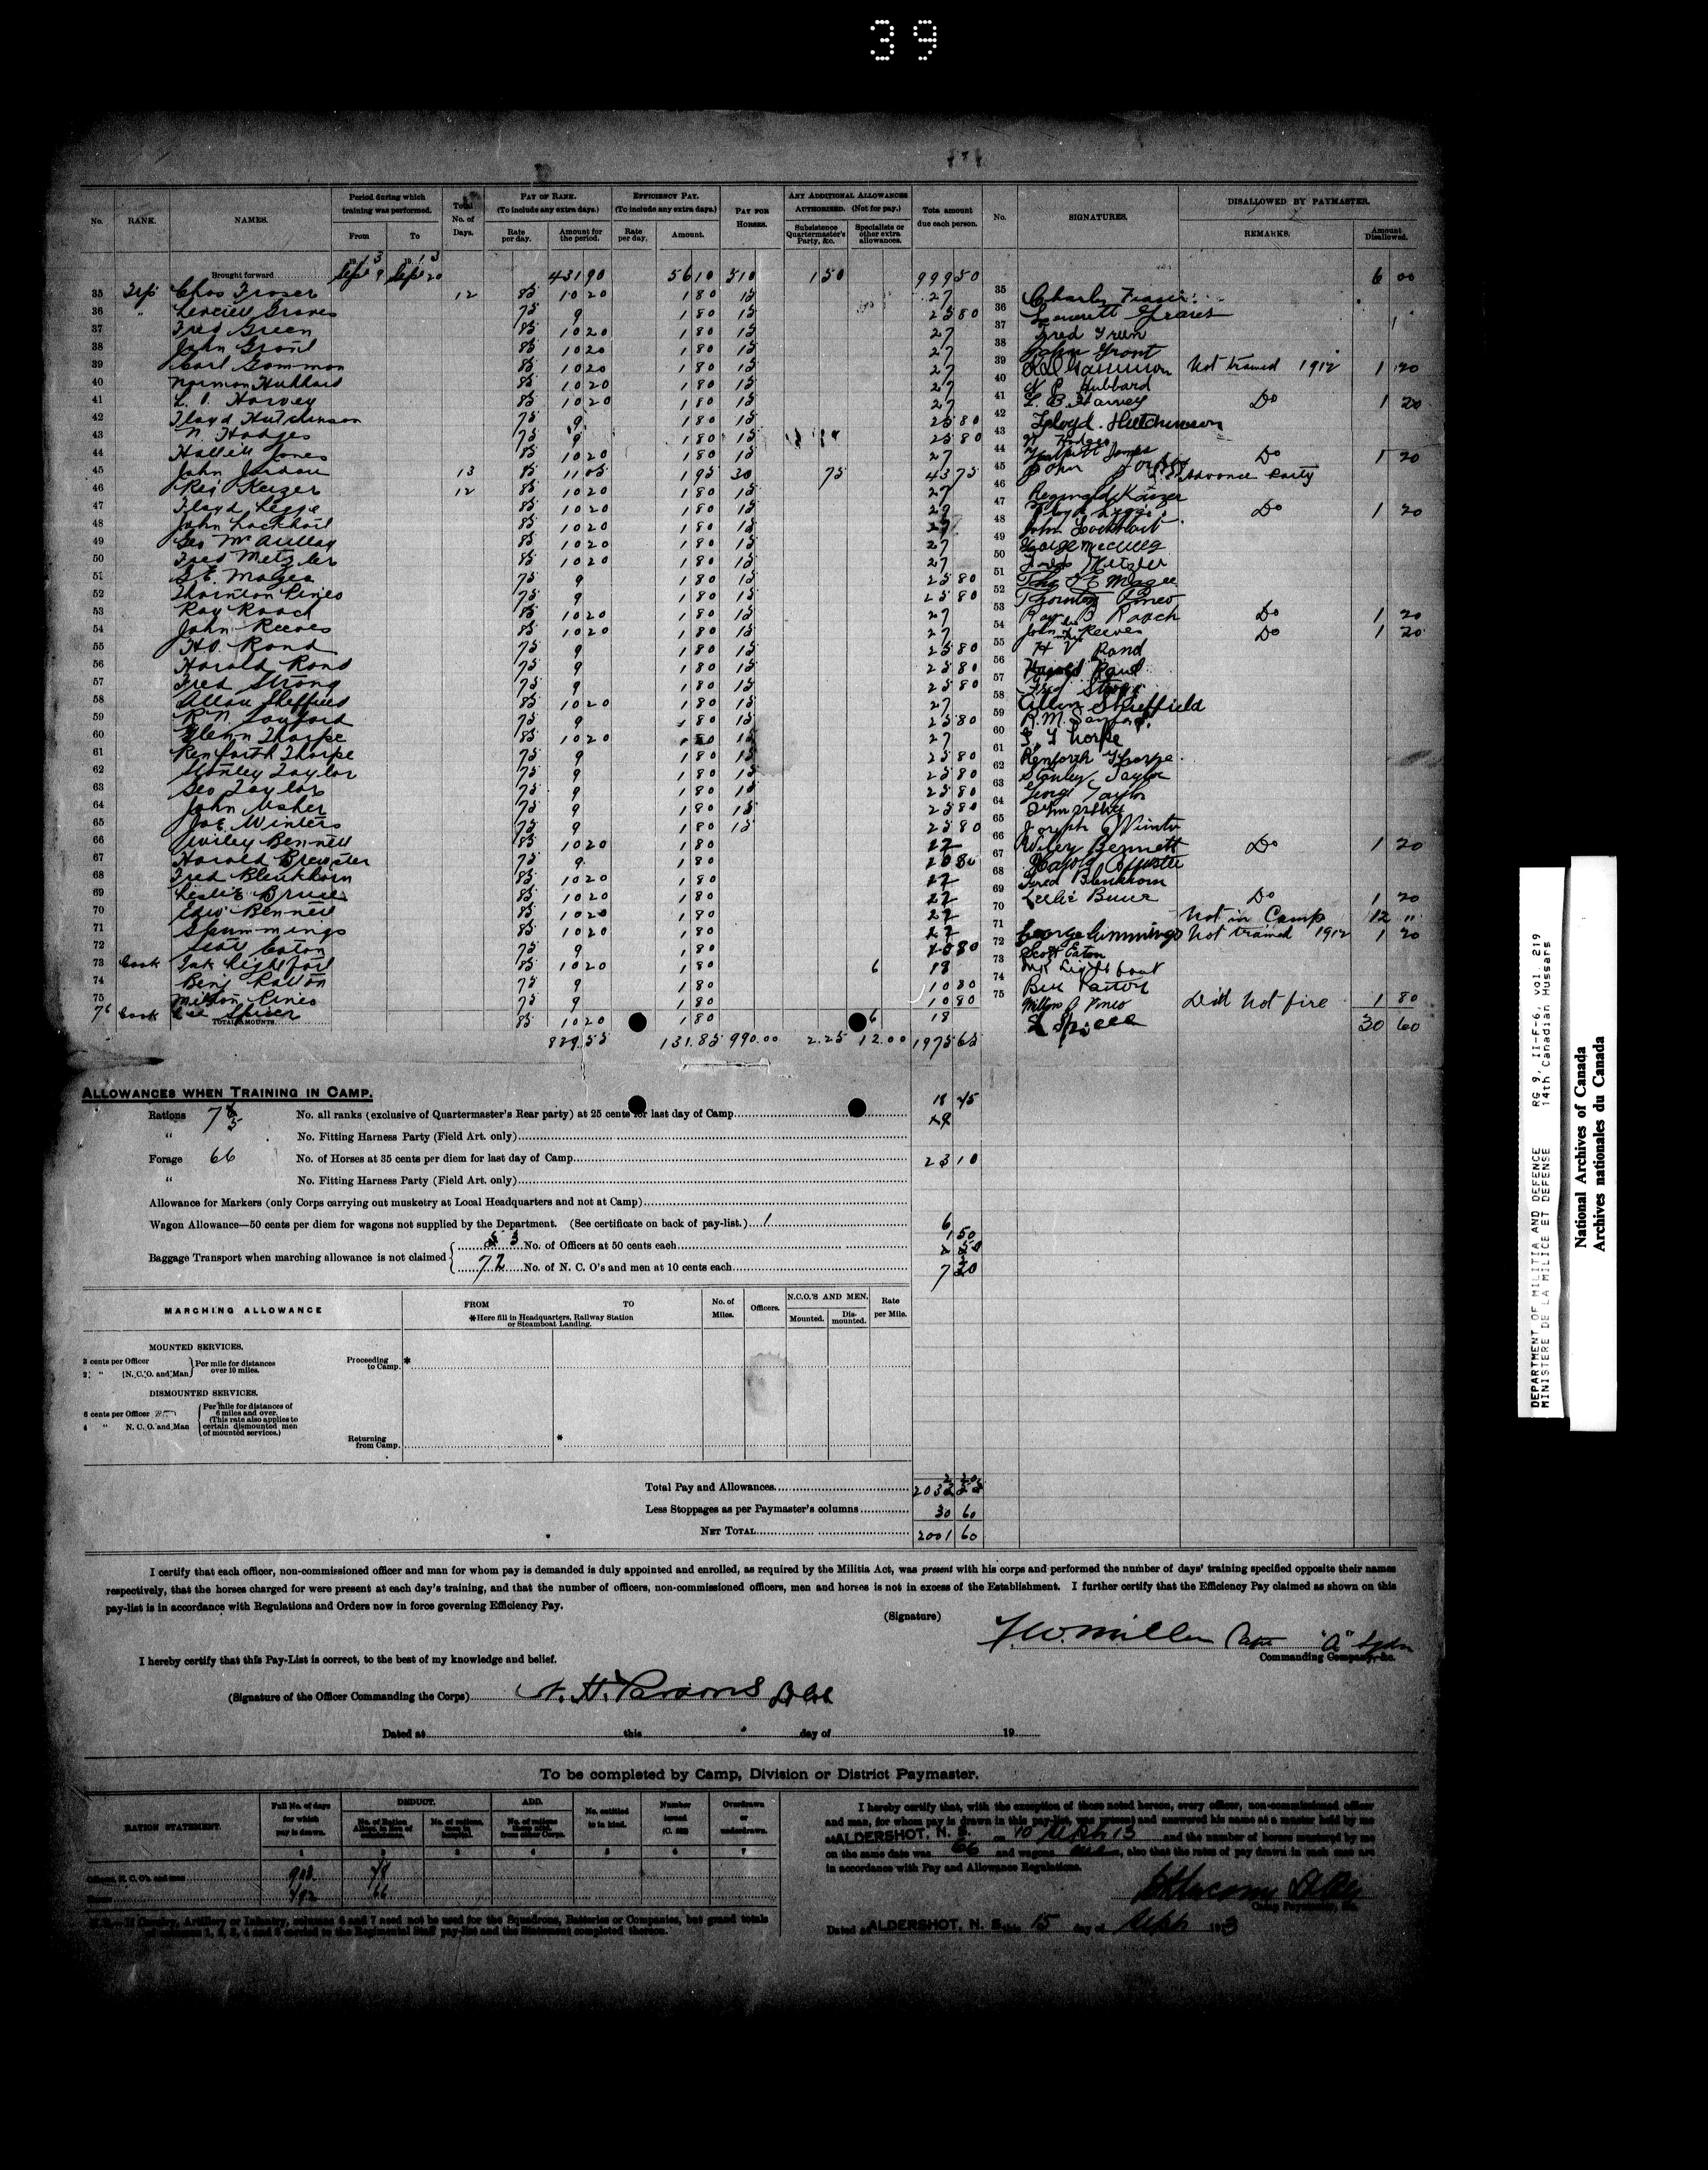 39
No. RANK. NAMES. Period during which training was performed. From To Total No. of Days. PAY OF RANK. (To include any extra days.) Rate per day. Amount for the period. EFFICIENCY PAY. (To include any extra days.) Rate per day. Amount. PAY FOR HORSES. ANY ADDITIONAL ALLOWANCES AUTHORISED. (Not for pay.) Subsistence Quartermaster's Party, &c. Specialists or other extra allowances. Total amount due each person. No. SIGNATURES. DISALLOWED BY PAYMASTER. REMARKS. Amount Disallowed.
Brought forward Sept 9 Sept 20 431 90 56 10 510 1 50 999 50 6 00
35 Trp Chas Fraser 12 85 10 20 1 80 15 27 35 Charley Fraser
36 " Graves 75 9 1 80 15 25 80 36 Graves
37 Fred Green 85 10 20 1 80 15 27 37 Fred Green
38 John Grant 85 10 20 1 80 15 27 38 John Grant
39 Carl Gammon 85 10 20 1 80 15 27 39 Gammon Not trained 1912 1 20
40 Norman Hubbard 85 10 20 1 80 15 27 40 N Hubbard
41 L. B. Harvey 85 10 20 1 80 15 27 41 L. B. Harvey Do 1 20
42 Floyd Hutchinson 75 9 1 80 15 25 80 42 Floyd Hutchinson
43 N. Hodges 75 9 1 80 15 25 80 43 N Hodges
44 Jones 85 10 20 1 80 15 27 44 Jones Do 1 20
45 John Jordan 13 85 11 05 1 95 30 75 43 75 45 John Jordan Advance Party
46 Reg Keizer 12 85 10 20 1 80 15 27 46 Reginald Keizer
47 Floyd Legge 85 10 20 1 80 15 27 47 Floyd Legge Do 1 20
48 John Lockhart 85 10 20 1 80 15 27 48 John Lockhart
49 Geo 85 10 20 1 80 15 27 49 George
50 Fred Metzler 85 10 20 1 80 15 27 50 Fred Metzler
51 G. E. Magee 75 9 1 80 15 25 80 51 E Magee
52 Thornton Pineo 75 9 1 80 15 25 80 52 Thornton Pineo
53 Ray Roach 85 10 20 1 80 15 27 53 Ray B Roach Do 1 20
54 John Reeves 85 10 20 1 80 15 27 54 John Reeves Do 1 20
55 H V. Rand 75 9 1 80 15 25 80 55 H V Rand
56 Harold Rand 75 9 1 80 15 25 80 56 Harold Rand
57 Fred Strong 75 9 1 80 15 25 80 57 Fred Strong
58 Allan Sheffield 85 10 20 1 80 15 27 58 Allan Sheffield
59 R. M. Sanford 75 9 1 80 15 25 80 59 R. M. Sanford
60 Glenn Thorpe 85 10 20 1 80 15 27 60 G. Thorpe
61 Renforth Thorpe 75 9 1 80 15 25 80 61 Renforth Thorpe
62 Stanley Taylor 75 9 1 80 15 25 80 62 Stanley Taylor
63 Geo Taylor 75 9 1 80 15 25 80 63 George Taylor
64 John Usher 75 9 1 80 15 25 80 64 John Usher
65 Joe Winters 75 9 1 80 15 25 80 65 Joseph Winters
66 Wiley Bennett 85 10 20 1 80 22 66 Wiley Bennett Do 1 20
67 Harold Brewster 75 9 1 80 10 80 67 Harold Brewster
68 Fred Blenkhorn 85 10 20 1 80 12 68 Fred Blenkhorn
69 Leslie Bruce 85 10 20 1 80 12 69 Leslie Bruce Do 1 20
70 Edw Bennett 85 10 20 1 80 12 70 Not in Camp 12 "
71 Cummings 85 10 20 1 80 12 71 George Cummings Not trained 1912 1 20
72 Scott Eaton 75 9 1 80 10 80 72 Scott Eaton
73 Cook Lightfoot 85 10 20 1 80 6 18 73 Lightfoot
74 Benj 75 9 1 80 10 80 74
75 Milton Pineo 75 9 1 80 10 80 75 Milton Pineo Did not fire 1 80
76 Cook Spicer 85 10 20 1 80 6 18 Spicer 30 60
TOTAL AMOUNTS 829.55 131.85 990.00 2.25 12.00 1975 65
ALLOWANCES WHEN TRAINING IN CAMP.
Rations 75 No. all ranks (exclusive of Quartermaster's Rear party) at 25 cents for last day of Camp 18 75
" No. Fitting Harness Party (Field Art. only)
Forage 66 No. of Horses at 35 cents per diem for last day of Camp 23 10
" No. Fitting Harness Party (Field Art. only)
Allowance for Markers (only Corps carrying out musketry at Local Headquarters and not at Camp)
Wagon Allowance—50 cents per diem for wagons not supplied by the Department. (See certificate on back of pay-list.) 1 6
Baggage Transport when marching allowance is not claimed 3 No. of Officers at 50 cents each 1 50
72 No. of N. C. O's and men at 10 cents each 7 20
MARCHING ALLOWANCE FROM TO *Here fill in Headquarters, Railway Station or Steamboat Landing. No. of Miles. Officers. N.C.O.'S AND MEN. Mounted. Dismounted. Rate per Mile.
MOUNTED SERVICES.
3 cents per Officer
2 " N.C.O. and Man
Per mile for distances over 10 miles.
Proceeding to Camp. *
DISMOUNTED SERVICES.
6 cents per Officer
4 " N. C. O. and Man
Per mile for distances of 6 miles and over. (This rate also applies to certain dismounted men of mounted services.)
Returning from Camp. *
Total Pay and Allowances 2032 20
Less Stoppages as per Paymaster's columns 30 60
NET TOTAL 2001 60
I certify that each officer, non-commissioned officer and man for whom pay is demanded is duly appointed and enrolled, as required by the Militia Act, was present with his corps and performed the number of days' training specified opposite their names
respectively, that the horses charged for were present at each day's training, and that the number of officers, non-commissioned officers, men and horses is not in excess of the Establishment. I further certify that the Efficiency Pay claimed as shown on this
pay-list is in accordance with Regulations and Orders now in force governing Efficiency Pay.
(Signature) F. W. Miller Capt "A" Sqdn
Commanding Company, &c.
I hereby certify that this Pay-List is correct, to the best of my knowledge and belief.
(Signature of the Officer Commanding the Corps) H. Parsons
Dated at this day of 19
To be completed by Camp, Division or District Paymaster.
RATION STATEMENT. Full No. of days for which pay is drawn. DEDUCT. No. of Ration Allces. in lieu of subsistence. No. of rations, men in hospital. ADD. No. of rations from other Corps. No. entitled to in kind. Number issued Overdrawn or underdrawn.
1 2 3 4 5 6 7
Officers, N. C. O's. and men 903
Horses 792 66
N.B.—If Cavalry, Artillery or Infantry, columns 6 and 7 need not be used for the Squadrons, Batteries or Companies, but grand totals
of columns 1, 2, 3, 4 and 5 carried to the Regimental Staff pay-list and the Statement completed thereon.
I hereby certify that, with the exception of those noted hereon, every officer, non-commissioned officer
and man, for whom pay is drawn in this pay-list, was present and answered his name at a muster held by me
at ALDERSHOT, N. S. on 10 Sept 13 and the number of horses mustered by me
on the same date was 66 and wagons, also that the rates of pay drawn in each case are
in accordance with Pay and Allowance Regulations.
Camp Paymaster, &c.
Dated at ALDERSHOT, N. S. this 15 day of Sept 1913
DEPARTMENT OF MILITIA AND DEFENCE RG 9, II-F-6, vol. 219
MINISTERE DE LA MILICE ET DEFENSE 14th Canadian Hussars
National Archives of Canada
Archives nationales du Canada